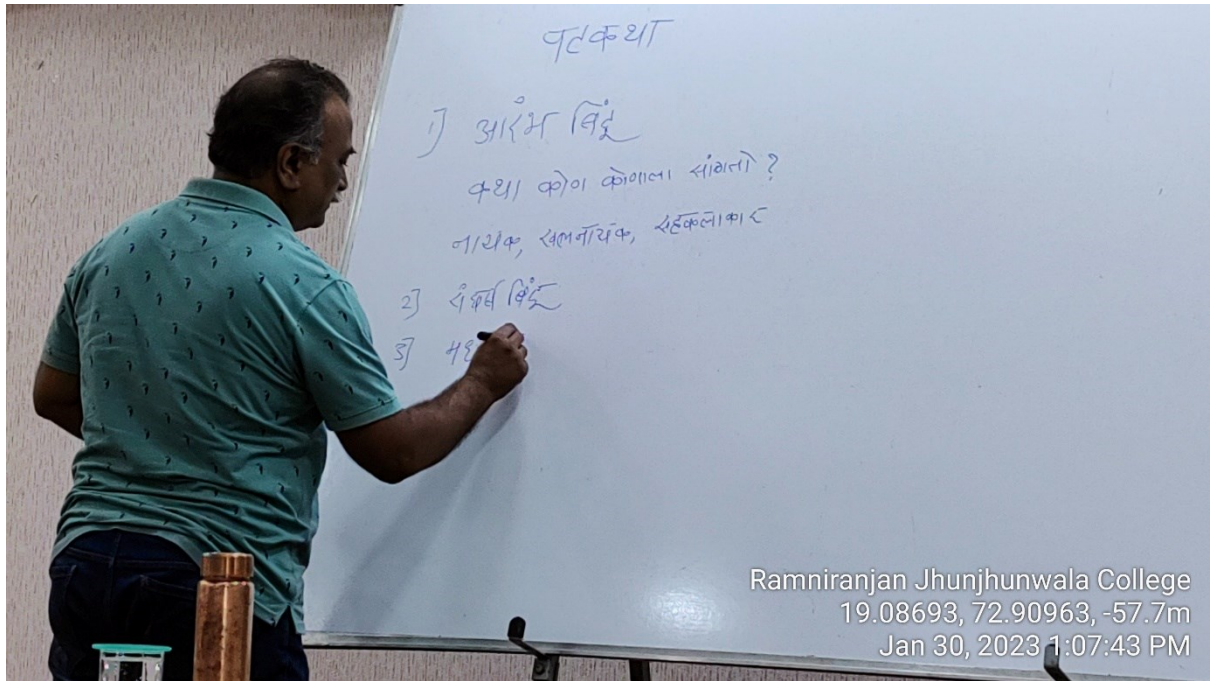 पटकथा
1] आरंभ बिंदू
कथा कोण कोणाला सांगतो ?
नायक, खलनायक, सहकलाकार
2] संघर्ष बिंदू
3]
Ramniranjan Jhunjhunwala College
19.08693, 72.90963, -57.7m
Jan 30, 2023 1:07:43 PM